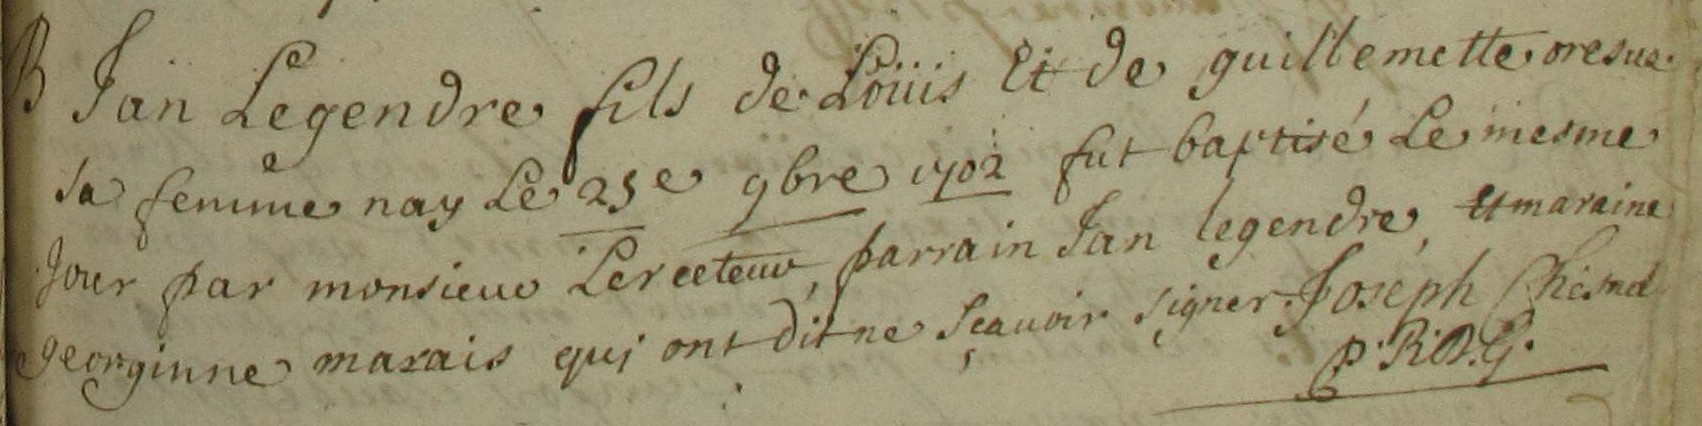 B Jan Legendre fils de Loüis Et de guillemette oresue
sa femme nay Le 25e 9bre 1702 fut baptisé Le mesme
Jour par monsieur Lerecteur, parrain Jan legendre, et maraine
georginne marais qui ont dit ne sçauoir signer. Joseph Chesnel
p. R. D. G.